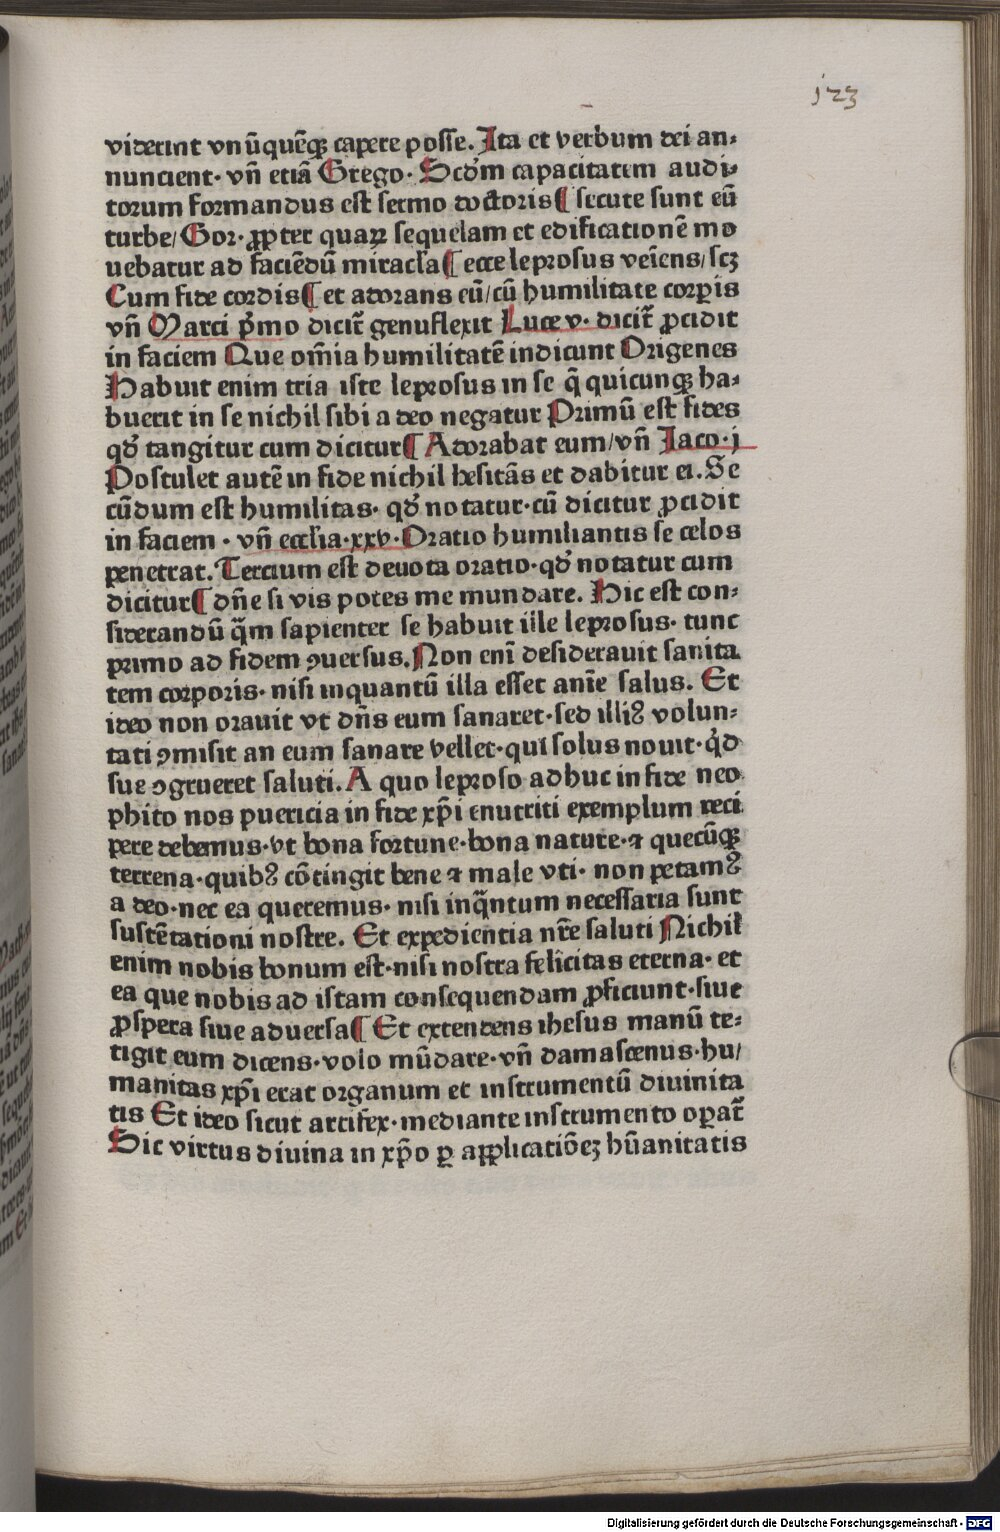 123
viderint vnūquēqꝫ capere posse. Ita et verbum dei an⸗
nuncient· vn̄ etiā Grego· Scd̓m capacitatem audi⸗
torum formandus est sermo doctoris¶ secute sunt eū
turbe/ Gor· ꝓpter quaꝝ sequelam et edificationē mo
uebatur ad faciēdū miracła¶ ecce leprosus veīens/ scꝫ
Cum fide cordis¶ et adorans eū/ cū humilitate corꝑis
vn̄ Marci p̓mo dicit̄ genuflexit Luce v· dicit̄ ꝓcidit
in faciem Que om̄ia humilitatē indicunt Origenes
Habuit enim tria iste leprosus in se q̄ quicunqꝫ ha⸗
buerit in se nichil sibi a deo negatur Primū est fides
qd̓ tangitur cum dicitur¶ Adorabat eum/ vn̄ Jaco·j
Postulet autē in fide nichil hesitās et dabitur ei. Se
cūdum est humilitas· qd̓ notatur·cū dicitur ꝓcidit
in faciem · vn̄ eccłia·xxv·Oratio humiliantis se celos
penetrat. Tercium est deuota oratio·qd̓ notatur cum
dicitur¶ dn̄e si vis potes me mundare. Hic est con⸗
siderandū q̄m sapienter se habuit ille leprosus· tunc
primo ad fidem ꝯuersus. Non enī desiderauit sanita
tem corporis· nisi inquantū illa esset anīe salus. Et
ideo non orauit vt dn̄s eum sanaret·sed illiꝰ volun⸗
tati ꝯmisit an eum sanare vellet·qui solus nouit·qd̓
sue ꝯgrueret saluti. A quo leproso adhuc in fide neo
phito nos puericia in fide xp̄i enutriti exemplum reci
pere debemus·vt bona fortune·bona nature·⁊ quecūqꝫ
terrena·quibꝰ cōtingit bene ⁊ male vti· non petamꝰ
a deo·nec ea queremus· nisi inq̄ntum necessaria sunt
sustētationi nostre. Et expedientia nr̄e saluti Nichil
enim nobis bonum est·nisi nostra felicitas eterna· et
ea que nobis ad istam consequendam ꝓficiunt·siue
ꝓspera siue aduersa¶ Et extendens ihesus manū te⸗
tigit eum dicens·volo mūdare·vn̄ damascenus·hu/
manitas xp̄i erat organum et instrumentū diuinita
tis Et ideo sicut artifex·mediante instrumento oꝑat̄
Sic virtus diuina in xp̄o ꝑ applicatiōeꝫ hūanitatis
Digitalisierung gefördert durch die Deutsche Forschungsgemeinschaft - DFG